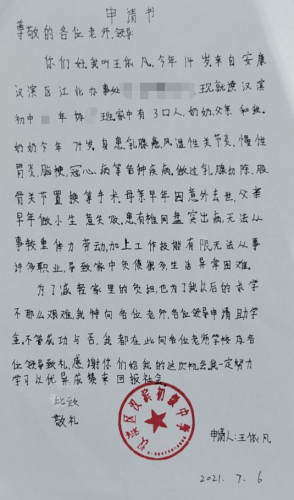 申请书
尊敬的各位老师、领导
你们好,我叫王依凡,今年14岁来自安康
汉滨区江北办事处 现就读汉滨
初中 年 班家中有3口人,奶奶、父亲和我。
奶奶今年79岁,身患乳腺癌风湿性关节炎、慢性
胃炎,脑梗,冠心病等各种疾病。做过乳腺切除、股
骨关节置换等手术,母亲早年因意外去世,父亲
早年做小生意失败,患有椎间盘突出病,无法从
事较重体力劳动,加上工作技能有限无法从事
许多职业,导致家中负债很多,生活异常困难。
为了减轻家里的负担,也为了我以后的求学
不那么艰难,我特向各位老师,各位领导申请助学
金,不管成功与否,我都在此向各位老师学校及各
位领导致礼,感谢你们给我的这次机会,我一定努力
学习以优异成绩来回报社会。
此致
敬礼
汉滨区汉滨初级中学
申请人:王依凡
2021.7.6